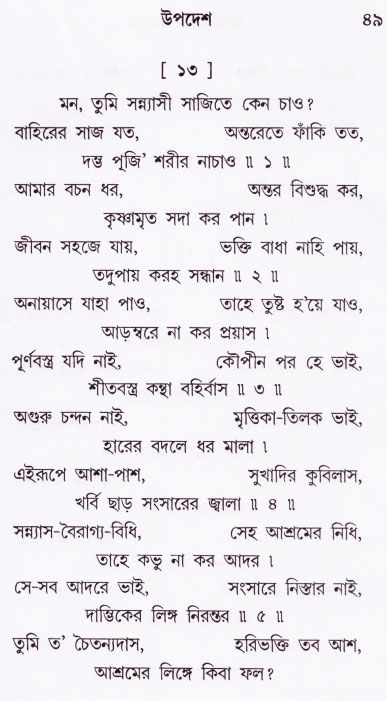 উপদেশ ৪৯
[ ১৩ ]
মন, তুমি সন্ন্যাসী সাজিতে কেন চাও?
বাহিরের সাজ যত, অন্তরেতে ফাঁকি তত,
দম্ভ পূজি’ শরীর নাচাও ॥ ১ ॥
আমার বচন ধর, অন্তর বিশুদ্ধ কর,
কৃষ্ণামৃত সদা কর পান ।
জীবন সহজে যায়, ভক্তি বাধা নাহি পায়,
তদুপায় করহ সন্ধান ॥ ২ ॥
অনায়াসে যাহা পাও, তাহে তুষ্ট হ’য়ে যাও,
আড়ম্বরে না কর প্রয়াস ।
পূর্ণবস্ত্র যদি নাই, কৌপীন পর হে ভাই,
শীতবস্ত্র কন্থা বহির্বাস ॥ ৩ ॥
অগুরু চন্দন নাই, মৃত্তিকা-তিলক ভাই,
হারের বদলে ধর মালা ।
এইরূপে আশা-পাশ, সুখাদির কুবিলাস,
খর্বি ছাড় সংসারের জ্বালা ॥ ৪ ॥
সন্ন্যাস-বৈরাগ্য-বিধি, সেহ আশ্রমের নিধি,
তাহে কভু না কর আদর ।
সে-সব আদরে ভাই, সংসারে নিস্তার নাই,
দাম্ভিকের লিঙ্গ নিরন্তর ॥ ৫ ॥
তুমি ত’ চৈতন্যদাস, হরিভক্তি তব আশ,
আশ্রমের লিঙ্গে কিবা ফল?